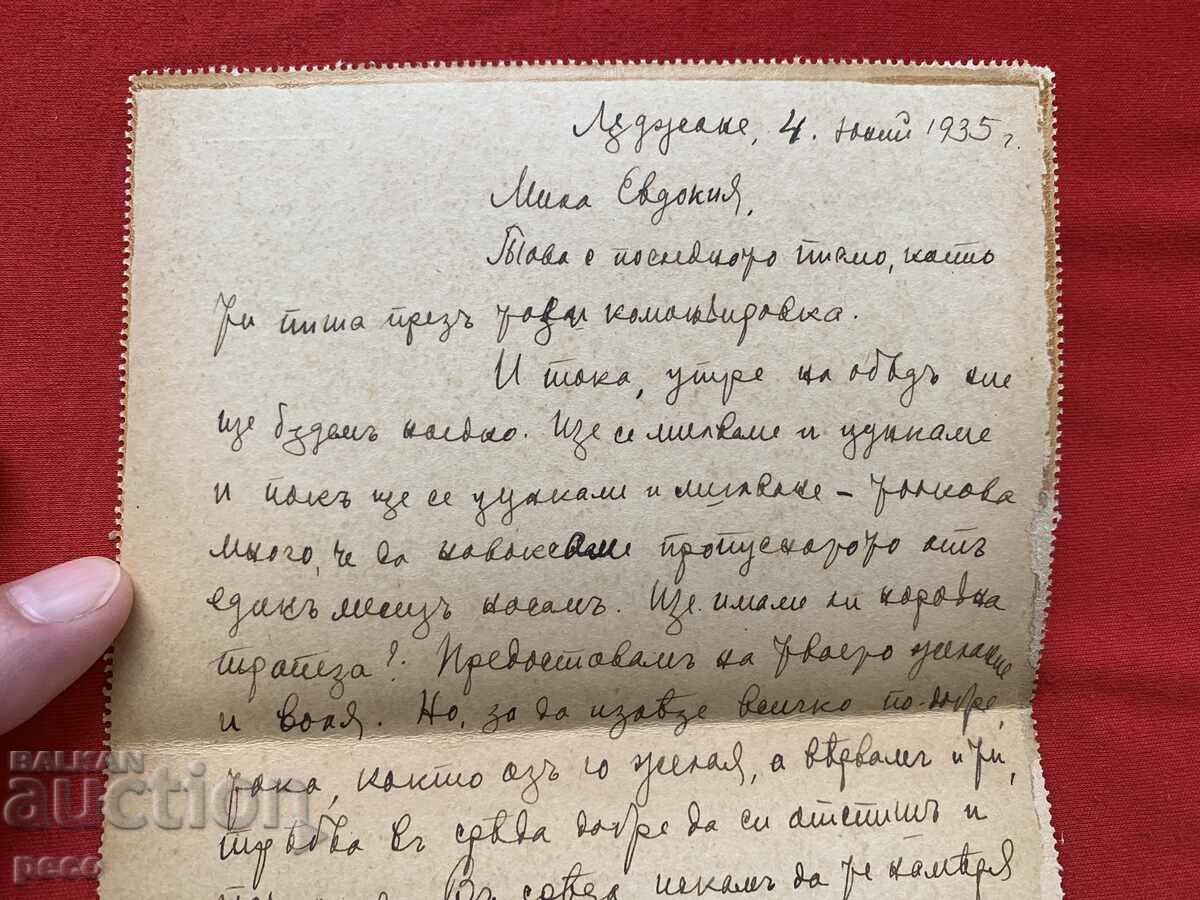 Лъджене, 4. юний 1935 г.
Мила Евдокия,
Това е последното писмо, което
ти пиша презъ тази командировка.
И така, утре на обѣдъ ние
ще бѫдемъ наедно. Ще се милваме и цункаме
и пакъ ще се цункаме и милваме – толкова
много, че да наваксваме пропуснатото отъ
единъ месецъ насамъ. Ще имаме ли королна
трапеза? Предоставямъ на твоето желание
и воля. Но, за да излѣзе всичко по-добре,
така, както азъ го желая, а вѣрвамъ и ти,
трѣбва въ срѣда добре да си отспишъ и
Въ срѣда искамъ да те намѣря
BALKAN
auction
peco